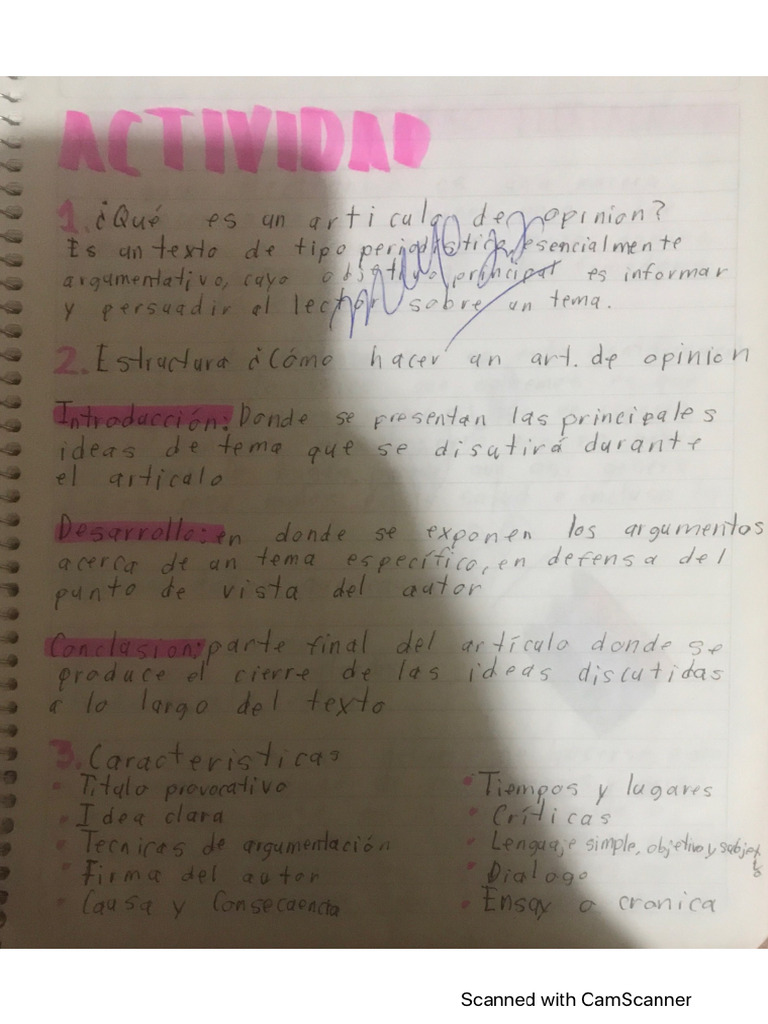 ACTIVIDAD
1. ¿Qué es un articulo de opinion?
Es un texto de tipo periodístico, esencialmente
argumentativo, cuyo objetivo principal es informar
y persuadir el lector sobre un tema.
2. Estructura ¿Cómo hacer un art. de opinion
Introducción: Donde se presentan las principales
ideas de tema que se disutirá durante
el articulo
Desarrollo: en donde se exponen los argumentos
acerca de un tema específico, en defensa del
punto de vista del autor
Conclusion: parte final del artículo donde se
produce el cierre de las ideas discutidas
a lo largo del texto
3. Caracteristicas
• Titulo provocativo
• Idea clara
• Tecnicas de argumentación
• Firma del autor
• Causa y Consecuencia
• Tiempos y lugares
• Críticas
• Lenguaje simple, objetivo y
• Dialogo
• Ensay o cronica
Scanned with CamScanner